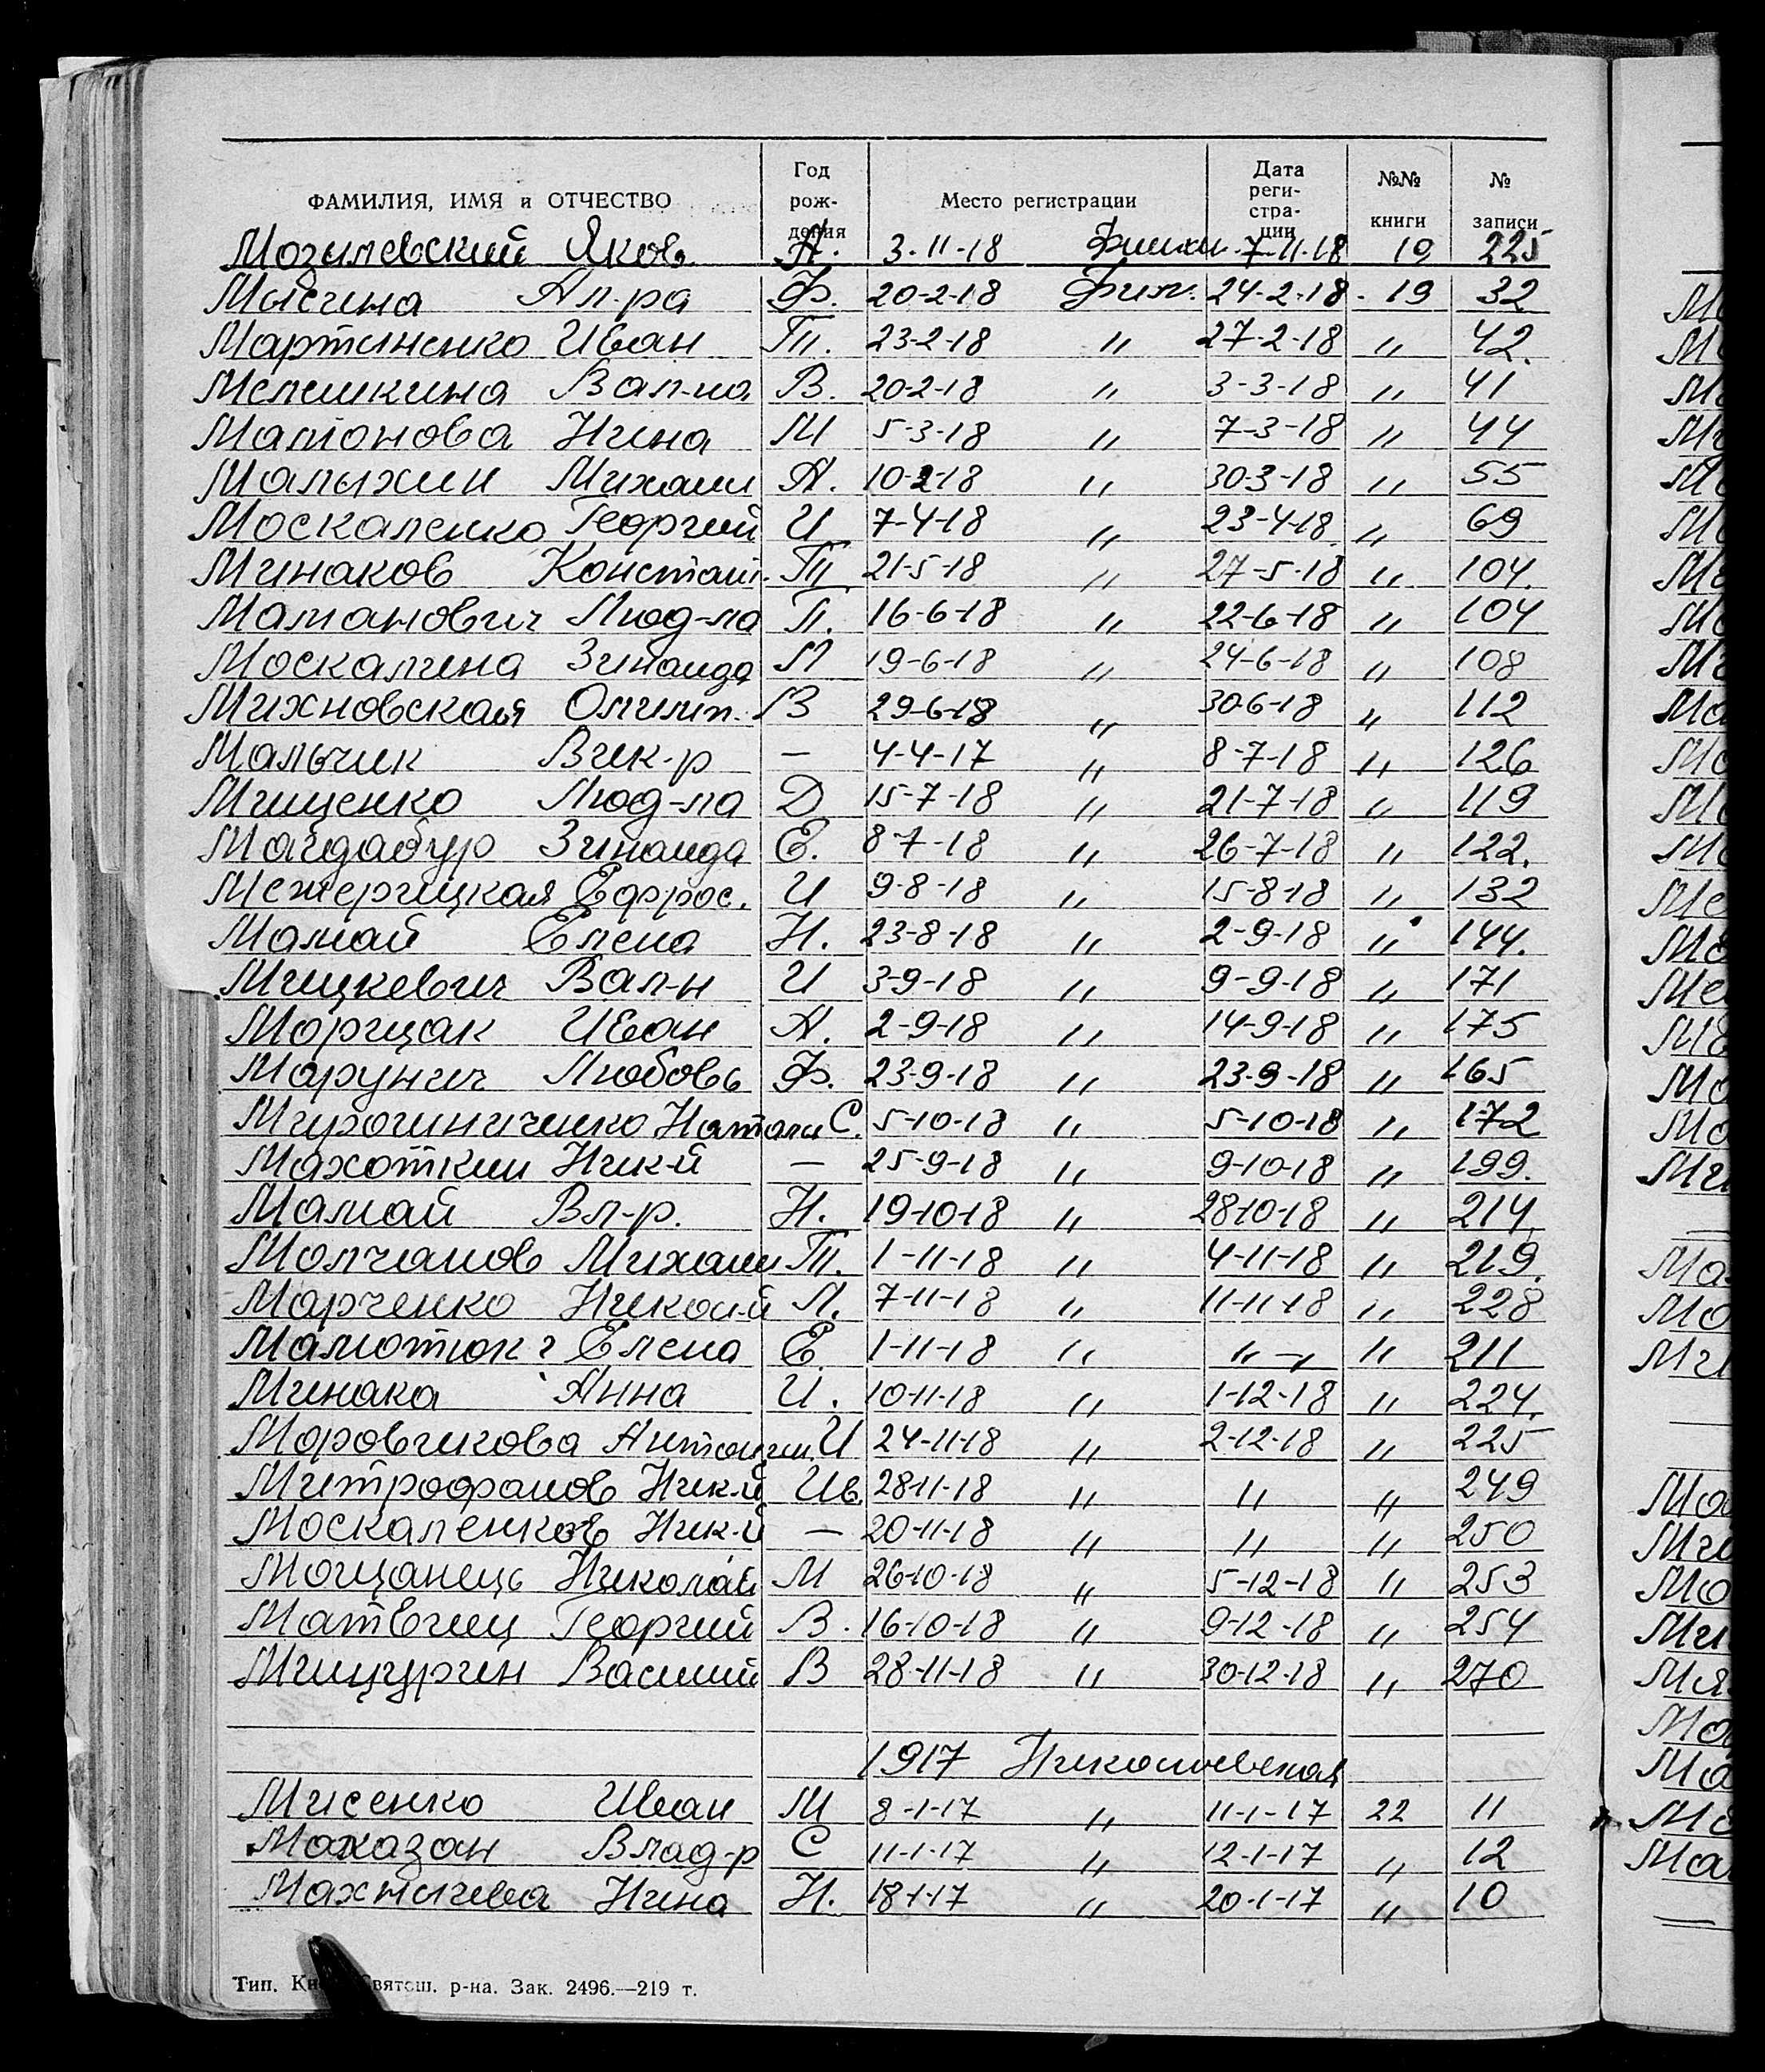 ФАМИЛИЯ, ИМЯ и ОТЧЕСТВО Год рож-дения Место регистрации Дата реги-стра-ции №№ книги № записи
Могилевский Яков А. 3-11-18 7-11-18 19 225
Мысина Ал-ра Ф. 20-2-18 24-2-18 19 32
Мартиненко Иван Т. 23-2-18 " 27-2-18 " 42.
Мелешкина Вал-на В. 20-2-18 " 3-3-18 " 41
Матонова Нина М 5-3-18 " 7-3-18 " 44
Малыхин Михаил А. 10-2-18 " 30-3-18 " 55
Москаленко Георгий И 7-4-18 " 23-4-18 " 69
Минаков Констант. Т 21-5-18 " 27-5-18 " 104.
Маманович Люд-ла П. 16-6-18 " 22-6-18 " 104
Москалина Зинаида Л 19-6-18 " 24-6-18 " 108
Михновская Олимп. В 29-6-18 " 30-6-18 " 112
Мальчик Вик-р — 4-4-17 " 8-7-18 " 126
Мищенко Люд-ла Д 15-7-18 " 21-7-18 " 119
Майдабур Зинаида Е. 8-7-18 " 26-7-18 " 122.
Межерицкая Ефрос. И 9-8-18 " 15-8-18 " 132
Мамай Елена Н. 23-8-18 " 2-9-18 " 144.
Мицкевич Вал-н И 3-9-18 " 9-9-18 " 171
Морщак Иван А. 2-9-18 " 14-9-18 " 175
Марунич Любовь Ф. 23-9-18 " 23-9-18 " 165
Мирошниченко Натали С. 5-10-18 " 5-10-18 " 172
Махоткин Ник-й — 25-9-18 " 9-10-18 " 199.
Мамай Вл-р. Н. 19-10-18 " 28-10-18 " 214
Молчанов Михаил Т. 1-11-18 " 4-11-18 " 219.
Марченко Никол-й Л. 7-11-18 " 11-11-18 " 228
Малютюк ? Елена Е. 1-11-18 " " " 211
Минака Анна И. 10-11-18 " 1-12-18 " 224.
Моровчикова Антонин. И 24-11-18 " 2-12-18 " 225
Митрофанов Ник-й Ив. 28-11-18 " " " 249
Москаленков Ник-й — 20-11-18 " " " 250
Мощанець Николай М 26-10-18 " 5-12-18 " 253
Матвеиц Георгий В. 16-10-18 " 9-12-18 " 254
Мищурин Василий В 28-11-18 " 30-12-18 " 270
1917 Николаевская
Мисенко Иван М 8-1-17 " 11-1-17 22 11
Маказан Влад-р С 11-1-17 " 12-1-17 " 12
Нина Н. 18-1-17 " 20-1-17 " 10
Тип. р-на. Зак. 2496.—219 т.